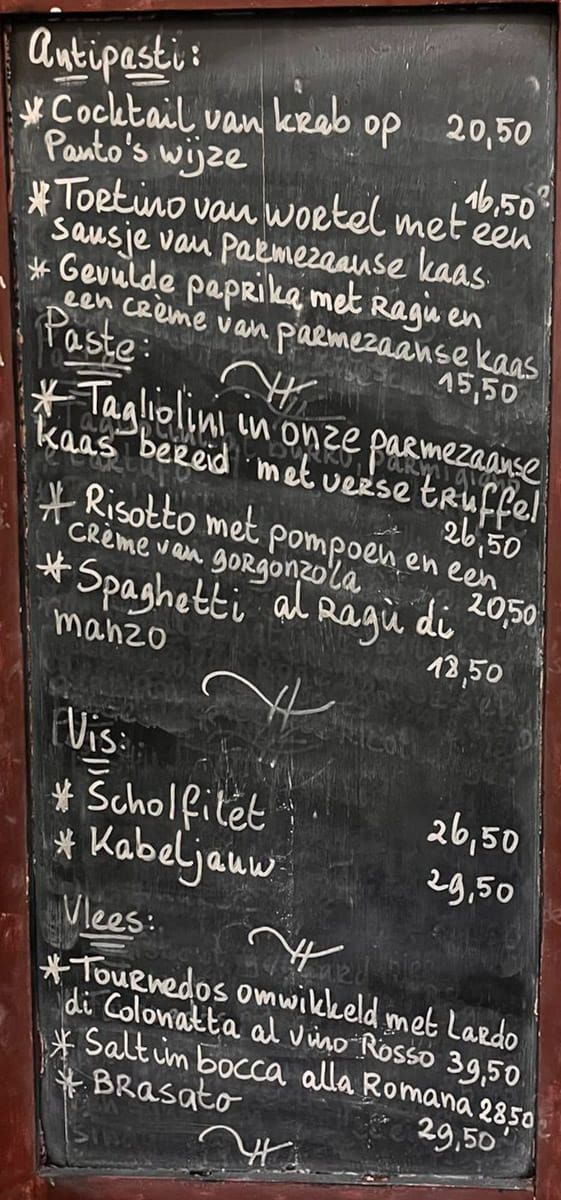 Antipasti:
* Cocktail van krab op 20,50
Panto's wijze
16,50
* Tortino van wortel met een
sausje van parmezaanse kaas.
* Gevulde paprika met Ragù en
een crème van parmezaanse kaas
15,50
Paste:
* Tagliolini in onze parmezaanse
kaas bereid met verse truffel
26,50
* Risotto met pompoen en een
crème van gorgonzola
20,50
* Spaghetti al Ragù di
manzo
18,50
Vis:
* Scholfilet 26,50
* Kabeljauw 29,50
Vlees:
* Tournedos omwikkeld met Lardo
di Colonatta al Vino Rosso 39,50
* Saltimbocca alla Romana 28,50
* Brasato
29,50